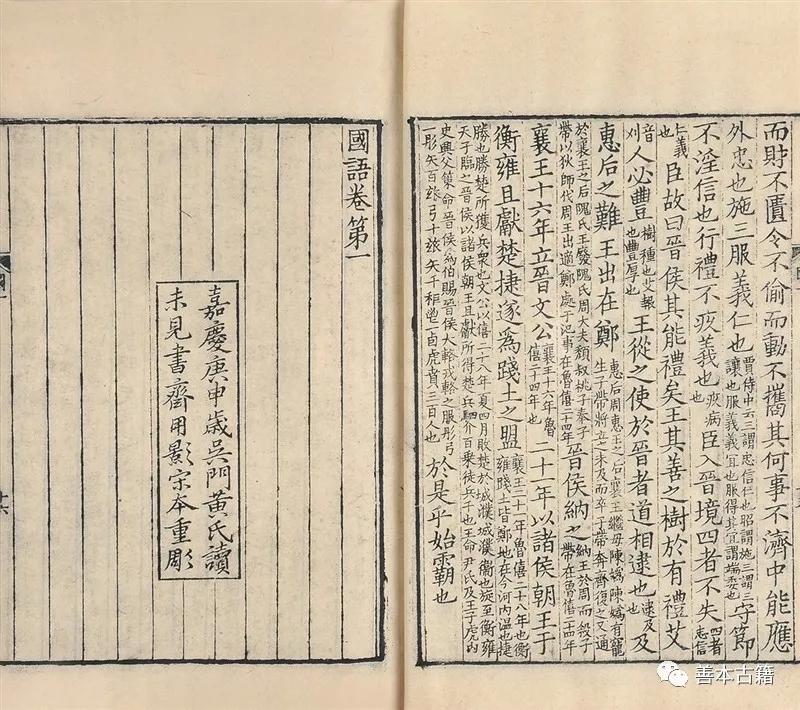 而財不匱令不偷而動不攜其何事不濟中能應
外忠也施三服義仁也賈侍中云三謂忠信仁也昭謂施三謂三讓也服義義宜也服得其宜謂端委也守節
不淫信也行禮不疚義也疚病也臣入晉境四者不失四者忠信
仁義也臣故曰晉侯其能禮矣王其善之樹於有禮艾
音刈人必豐樹種也艾報也豐厚也王從之使於晉者道相逮也逮及也及
惠后之難王出在鄭惠后周惠王之后襄王繼母陳媯陳媯有寵生子帶將立之未及而卒子帶奔齊復之又通
於襄王之后隗氏王廢隗氏周大夫頹叔桃子奉子帶以狄師伐周王出適鄭處于氾事在魯僖二十四年晉侯納之納王於周而殺子帶在魯僖二十年
襄王十六年立晉文公襄王十六年魯僖二十四年也二十一年以諸侯朝王于
衡雍且獻楚捷遂爲踐土之盟襄王二十一年魯僖二十八年也衡雍踐土皆鄭地在今河内温也捷
勝也勝楚所獲兵衆也文公以僖二十八年夏四月敗楚於城濮城濮衞也旋至衡雍天子臨之晉侯以諸侯朝王且獻所得楚兵駟介百乘徒兵千也王命尹氏及王子虎内
史興父策命晉侯爲伯賜晉侯大輅戎輅之服彤弓一彤矢百玈弓十玈矢千秬鬯一卣虎賁三百人也於是乎始霸也
國語卷第一
嘉慶庚申歲吳門黃氏讀
未見書齋用影宋本重彫
國一
十六
善本古籍